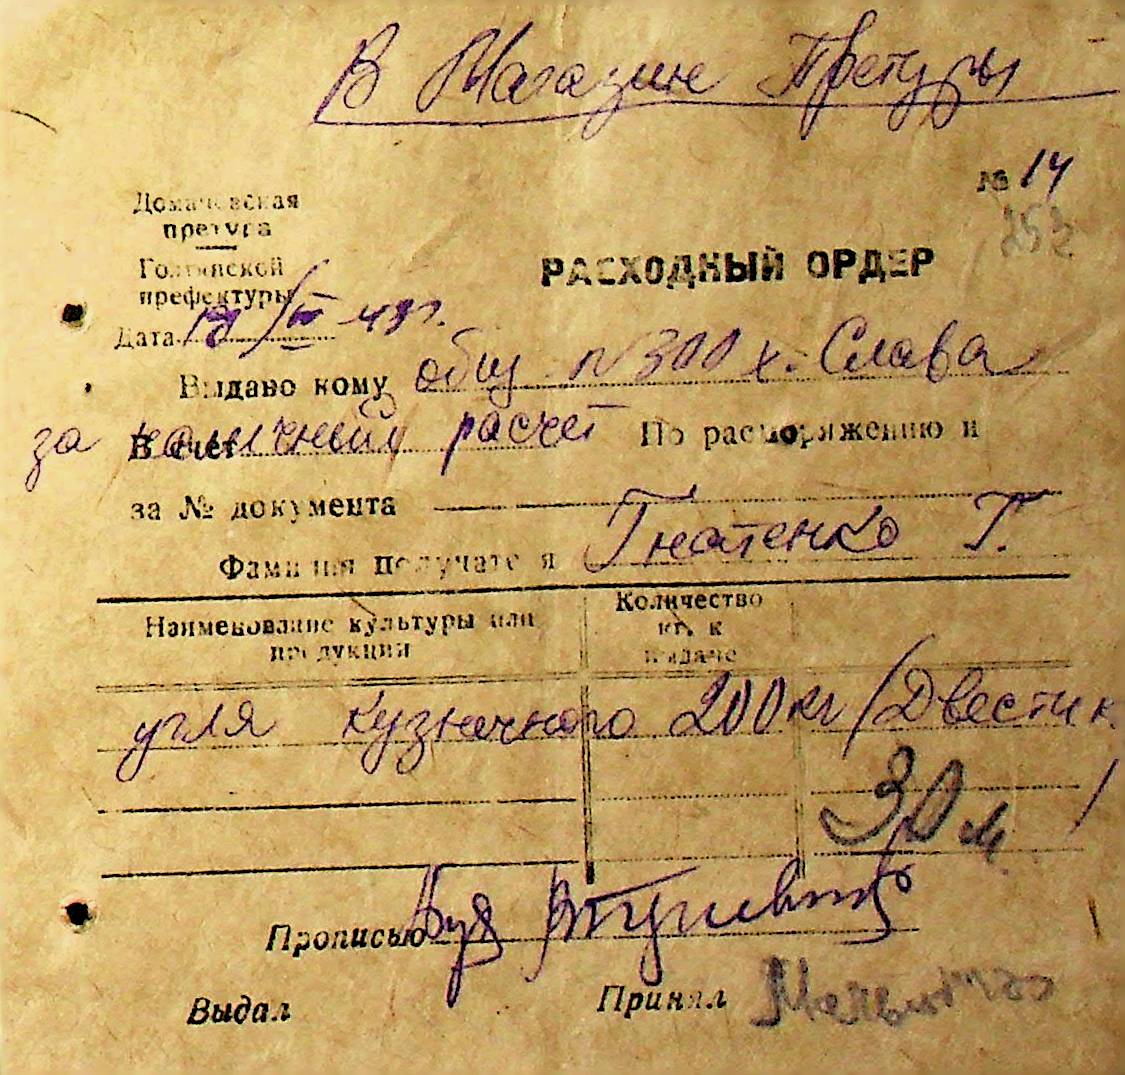 В Магазин Претуры
№ 14
252
Домачевская
претура
Голтянской
префектуры
РАСХОДНЫЙ ОРДЕР
Дата 43г.
Выдано кому общ. № 300 х. Слава
за наличный расчет
В счет По распоряжению и
за № документа
Фамилия получателя Гнатенко Г.
Наименование культуры или
продукции
Количество
кг. к
выдаче
угля кузнечного 200 кг (Двести к
30 м
Прописью
Выдал Принял